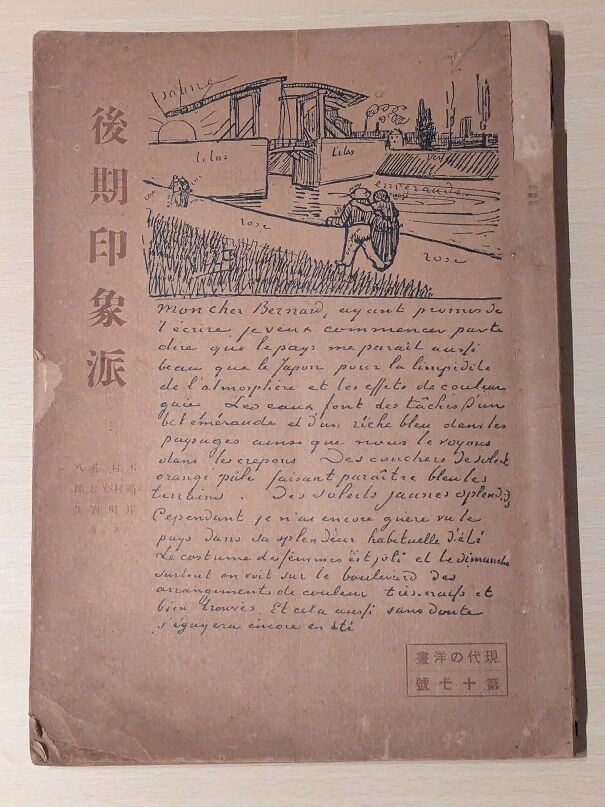 後期印象派
木村莊八
高村光太郎
岸田劉生
jaune
lilas
lilas
vert
émeraude
rose
rose
rose
rose
mon cher Bernard, ayant promis de
t'écrire je veux commencer par te
dire que le pays me parait aussi
beau que le Japon pour la limpidité
de l'atmosphère et les effets de couleur
gaie. Les eaux font des tâches d'un
bel émeraude et d'un riche bleu dans les
paysages ainsi que nous le voyons
dans les crepons. Des couchers de soleil
orangé pâle faisant paraître bleu les
terrains. Des soleils jaunes splendides
Cependant je n'ai encore guère vu le
pays dans sa splendeur habituelle d'été
Le costume des femmes est joli et le dimanche
surtout on voit sur le boulevard des
arrangements de couleur très naïfs et
bien trouvés. Et cela aussi sans doute
s'égayera encore en été
現代の洋畫
第十七號